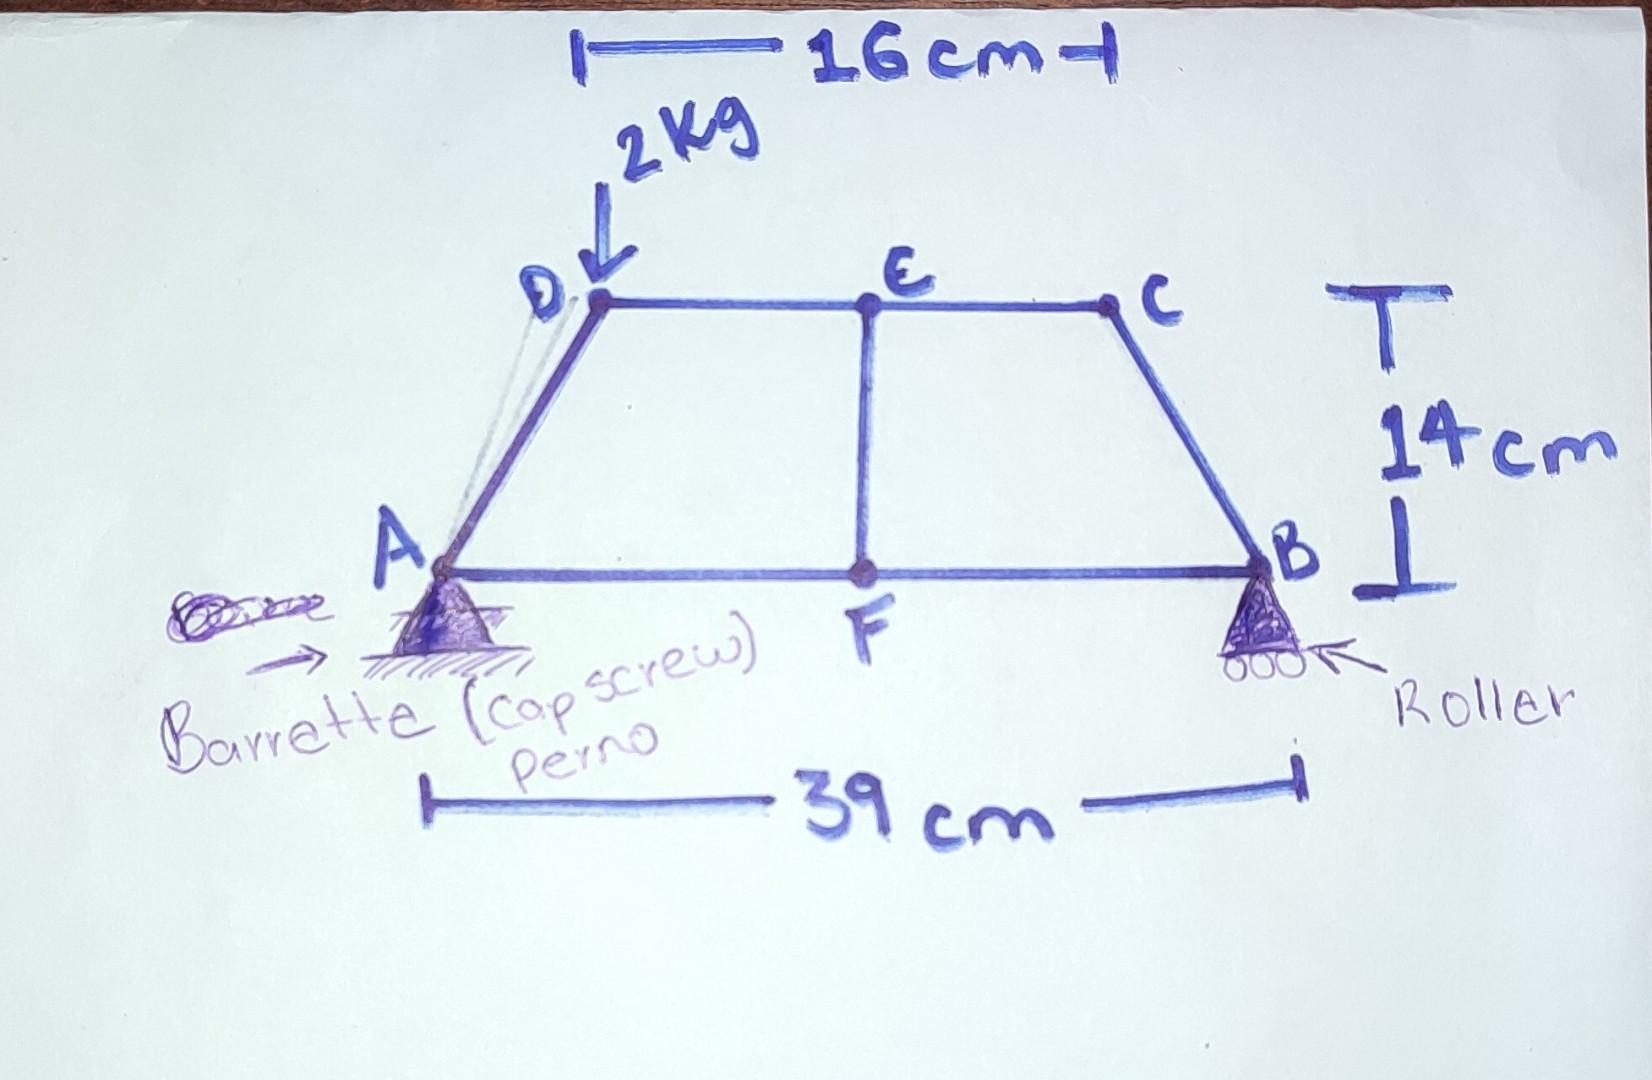 16 cm
2 Kg
D
E
C
14 cm
A
B
F
Barrette (cap screw)
perno
Roller
39 cm